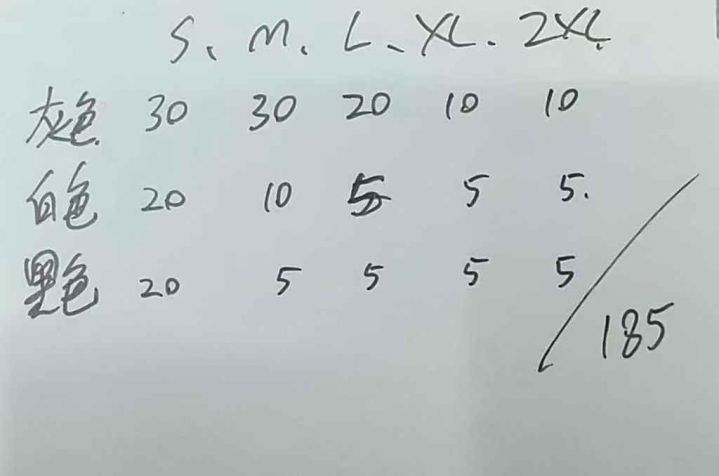 S、M、L、XL、2XL
灰色 30 30 20 10 10
白色 20 10 5 5 5.
黑色 20 5 5 5 5
185